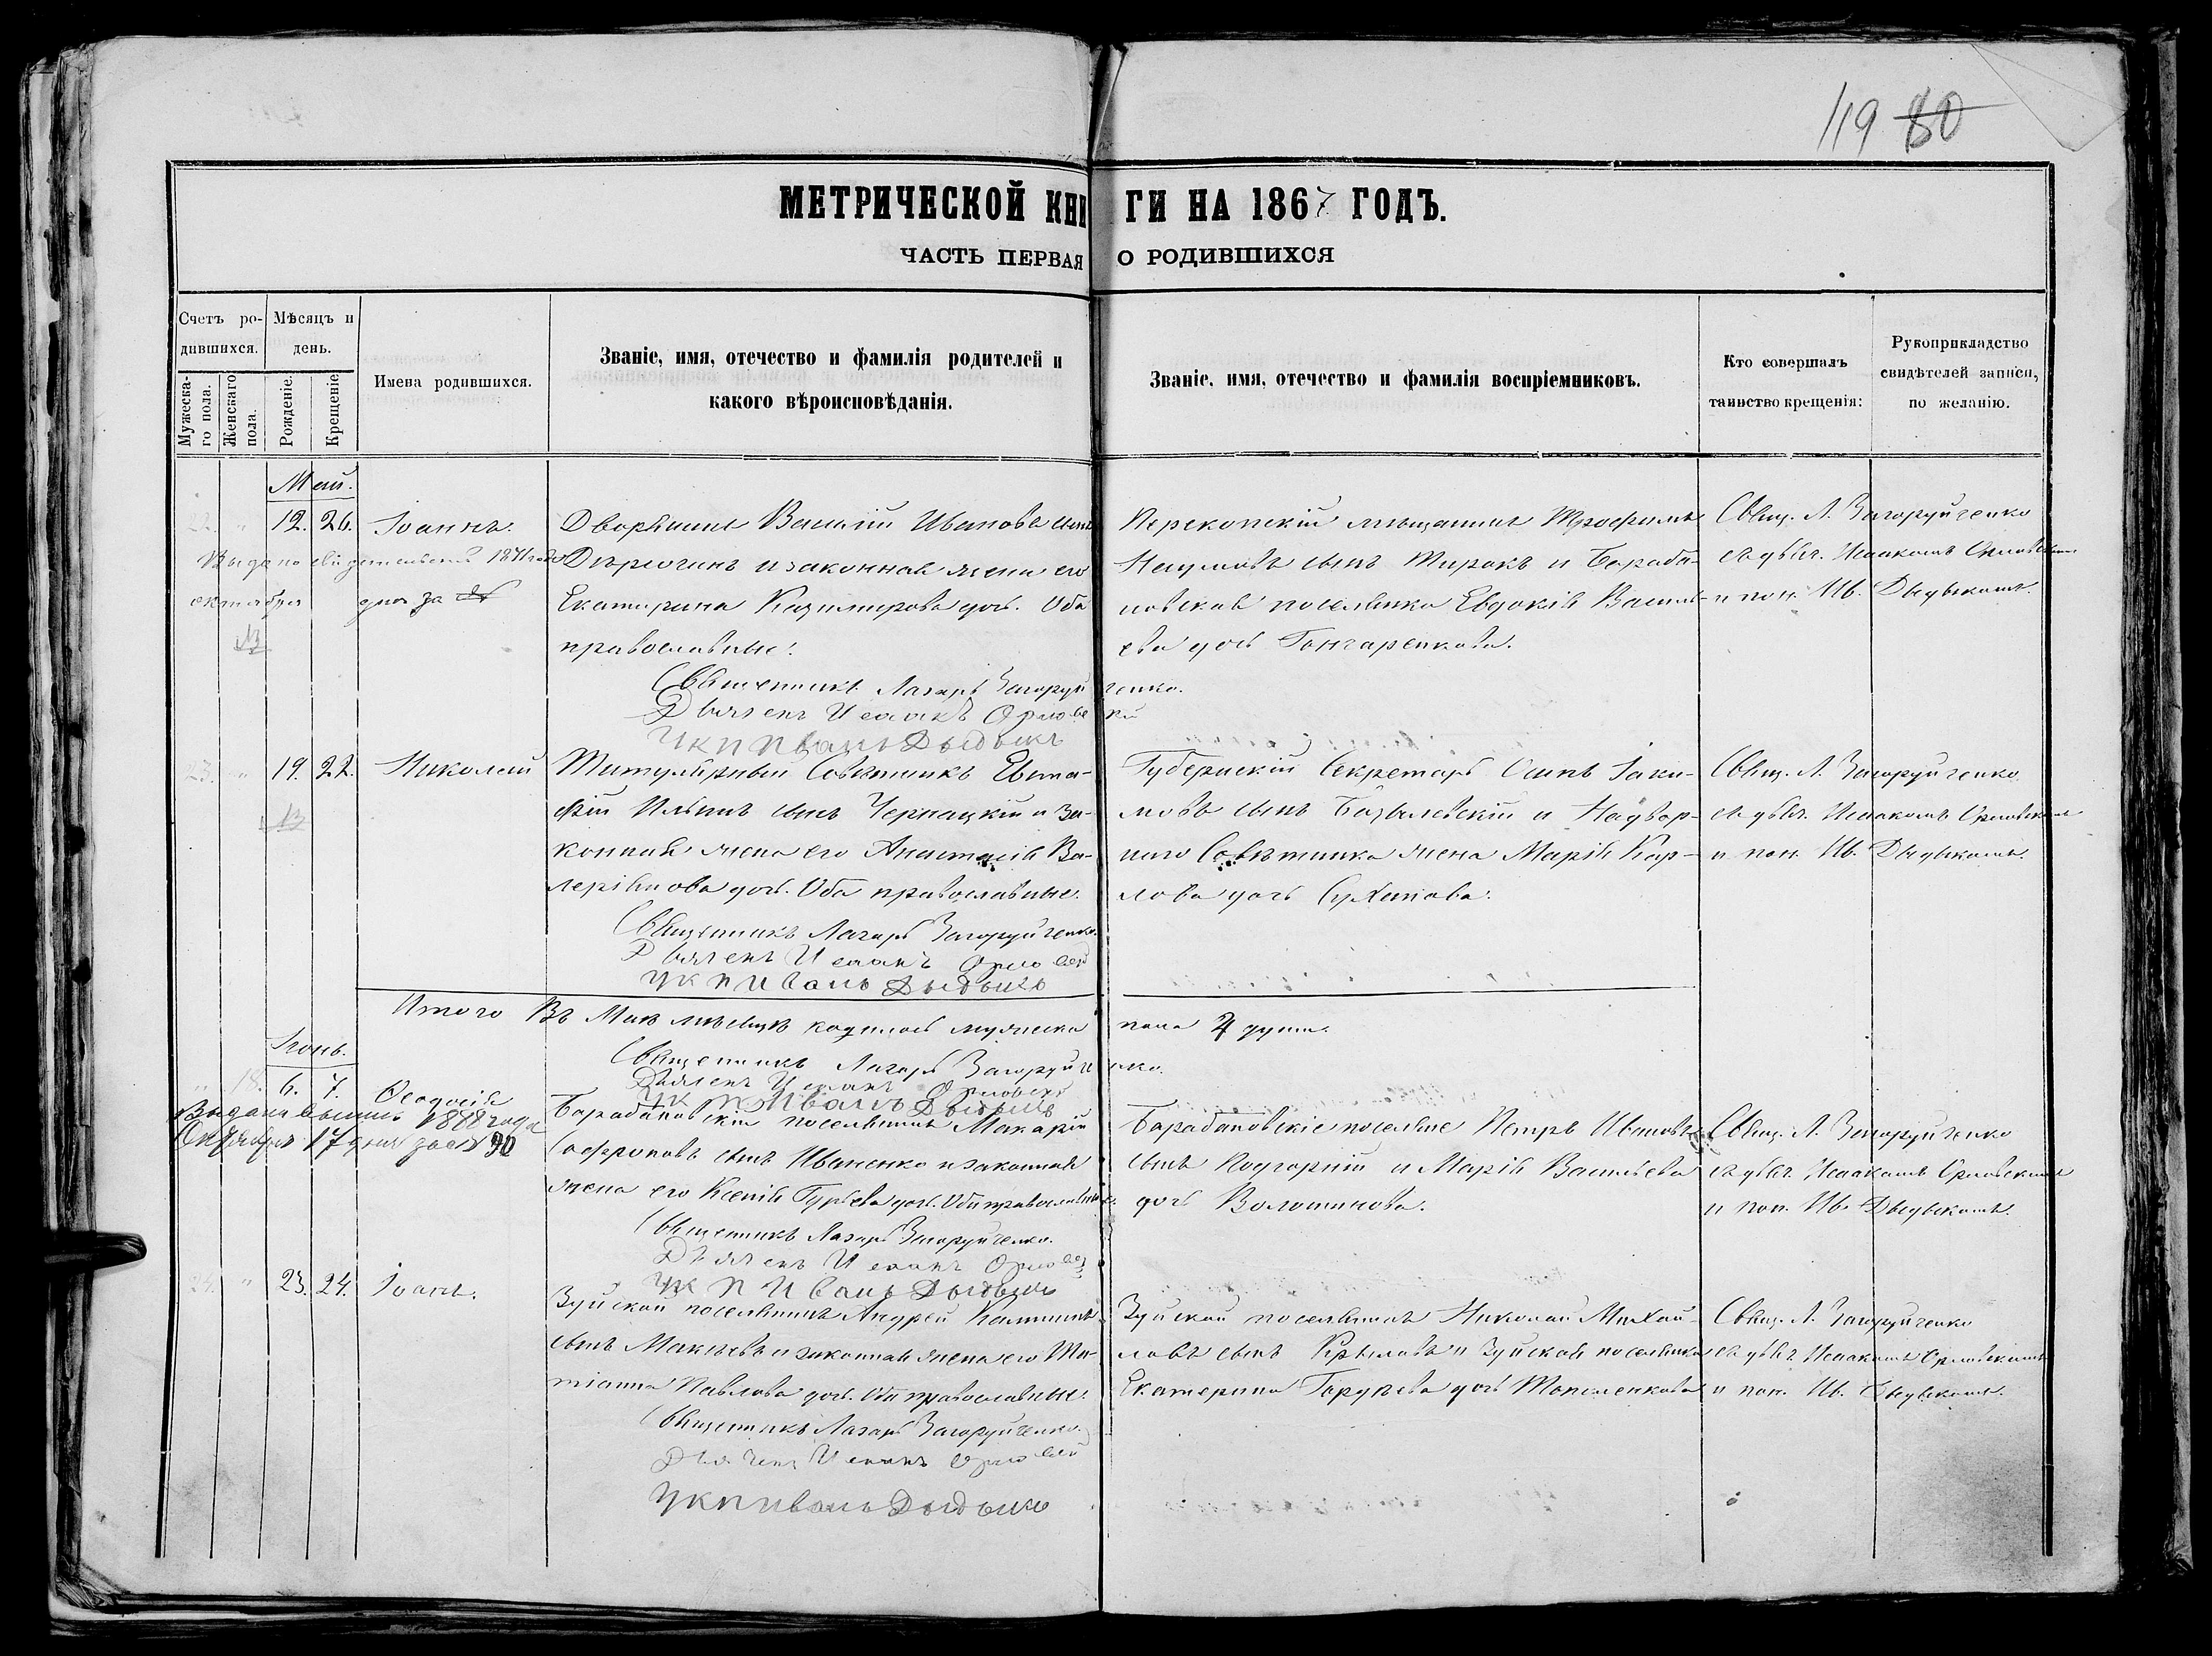 119 80
МЕТРИЧЕСКОЙ КНИГИ НА 1867 ГОДЪ.
ЧАСТЬ ПЕРВАЯ О РОДИВШИХСЯ
Счетъ родившихся.
Мужескаго пола.
Женскаго пола.
Мѣсяцъ и день.
Рожденіе.
Крещеніе.
Имена родившихся.
Званіе, имя, отечество и фамилія родителей и
какого вѣроисповѣданія.
Званіе, имя, отечество и фамилія воспріемниковъ.
Кто совершалъ
таинство крещенія:
Рукоприкладство
свидѣтелей записи,
по желанію.
Май.
22. " 12. 26. Іоаннъ.
Дворянинъ Василій Ивановъ сынъ
законная жена его
Екатерина Казимирова дочь. Оба
православные.
Священникъ Лазарь Загоруйченко.
Дьячекъ Исаакъ Орловскій
Иванъ Дыдыкъ
Перекопскій мѣщанинъ Трофимъ
Наумовъ сынъ Ширакъ и Бараба-
новская поселянка Евдокія Василь-
ева дочь Гончаренкова.
Свящ. Л. Загоруйченко
съ дьяч. Исаакомъ Орловскимъ
и пон. Ив. Дыдыкомъ.
октября дня за №
13
23. " 19. 22. Николай
Титулярный Совѣтникъ Евста-
фій Ильинъ сынъ Чернацкій и за-
конная жена его Анастасія Ва-
леріанова дочь. Оба православные.
Священникъ Лазарь Загоруйченко.
Дьячекъ Исаакъ Орловскій
Иванъ Дыдыкъ
Губернскій Секретарь Осипъ Іаки-
мовъ сынъ Базилевскій и Надвор-
наго Совѣтника жена Марія Кар-
лова дочь
Свящ. Л. Загоруйченко
съ дьяч. Исаакомъ Орловскимъ
и пон. Ив. Дыдыкомъ.
13
Итого Въ Маѣ мѣсяцѣ родилось мужеска пола 4 души.
Священникъ Лазарь Загоруйченко.
Дьячекъ Исаакъ Орловскій
Иванъ Дыдыкъ
Іюнь.
" 18. 6. 7. Ѳеодосія
1888 года
Октября 17 дня за № 90
Барабановскій поселянинъ Макарій
Софроновъ сынъ Иваненко и законная
жена его Ксенія Гурьева дочь. Оба православные.
Священникъ Лазарь Загоруйченко.
Дьячекъ Исаакъ Орловскій
Иванъ Дыдыкъ
Барабановскіе поселяне Петръ Ивановъ
сынъ Подгорній и Марія Васильева
дочь Волошинова.
Свящ. Л. Загоруйченко
съ дьяч. Исаакомъ Орловскимъ
и пон. Ив. Дыдыкомъ.
24. " 23. 24. Іоаннъ.
Зуйской поселянинъ Андрей
сынъ Макѣевъ и законная жена его Та-
тіанна Павлова дочь. Оба православные.
Священникъ Лазарь Загоруйченко.
Дьячекъ Исаакъ Орловскій
Иванъ Дыдыкъ
Зуйской поселянинъ Николай Михай-
ловъ сынъ Крыловъ и Зуйская поселянка
Екатерина дочь
Свящ. Л. Загоруйченко
съ дьяч. Исаакомъ Орловскимъ
и пон. Ив. Дыдыкомъ.